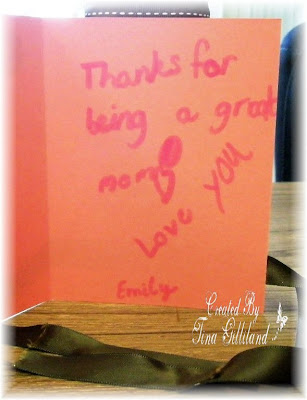 Thanks for
being a great
mom
Love you
Emily
Created By
Tina Gilliland